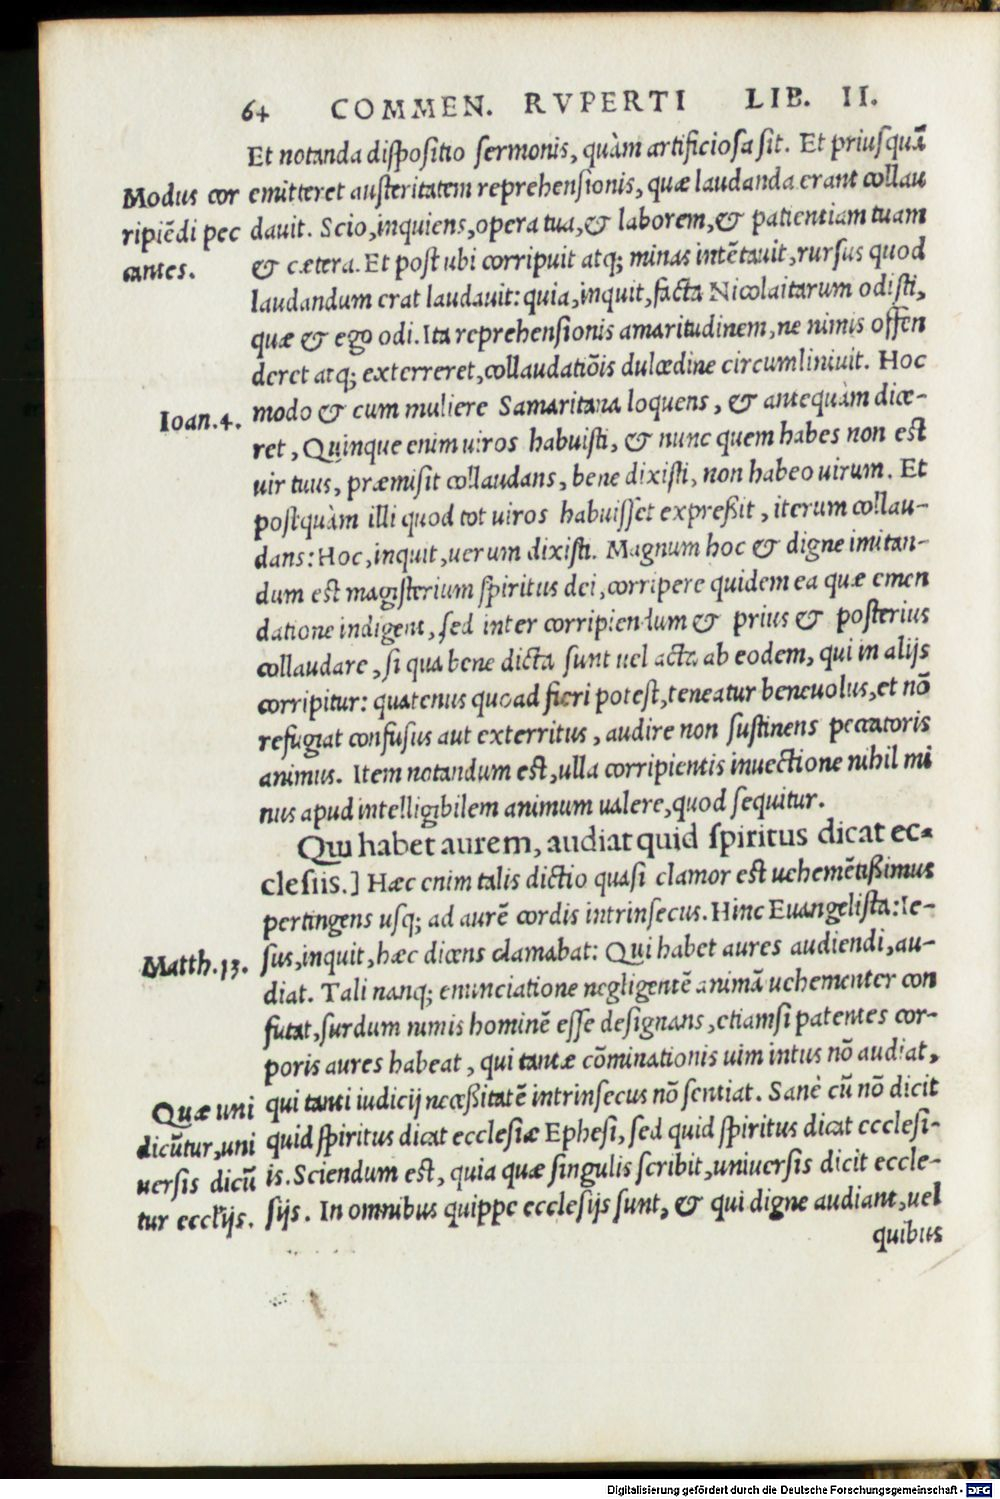 64 COMMEN. RVPERTI LIB. II.
Et notanda dispositio sermonis, quàm artificiosa sit. Et priusquã
emitteret austeritatem reprehensionis, quæ laudanda erant collau
dauit. Scio, inquiens, opera tua, & laborem, & patientiam tuam
& cætera. Et post ubi corripuit atq; minas intẽtauit, rursus quod
laudandum erat laudauit: quia, inquit, facta Nicolaitarum odisti,
quæ & ego odi. Ita reprehensionis amaritudinem, ne nimis offen
deret atq; exterreret, collaudatiõis dulcedine circumliniuit. Hoc
modo & cum muliere Samaritana loquens, & antequàm dice-
ret, Quinque enim uiros habuisti, & nunc quem habes non est
uir tuus, præmisit collaudans, bene dixisti, non habeo uirum. Et
postquàm illi quod tot uiros habuisset expreßit, iterum collau-
dans: Hoc, inquit, uerum dixisti. Magnum hoc & digne imitan-
dum est magisterium spiritus dei, corripere quidem ea quæ emen
datione indigent, sed inter corripiendum & prius & posterius
collaudare, si qua bene dicta sunt uel acta ab eodem, qui in alijs
corripitur: quatenus quoad fieri potest, teneatur beneuolus, et nõ
refugiat confusus aut exterritus, audire non sustinens peccatoris
animus. Item notandum est, ulla corripientis inuectione nihil mi
nus apud intelligibilem animum ualere, quod sequitur.
Qui habet aurem, audiat quid spiritus dicat ec-
clesiis.] Hæc enim talis dictio quasi clamor est uehemẽtißimus
pertingens usq; ad aurẽ cordis intrinsecus. Hinc Euangelista: Ie-
sus, inquit, hæc dicens clamabat: Qui habet aures audiendi, au-
diat. Tali nanq; enunciatione negligentẽ animã uehementer con
futat, surdum nimis hominẽ esse designans, etiamsi patentes cor-
poris aures habeat, qui tantæ cõminationis uim intus nõ audiat,
qui tanti iudicij neceßitatẽ intrinsecus nõ sentiat. Sanè cũ nõ dicit
quid spiritus dicat ecclesiæ Ephesi, sed quid spiritus dicat ecclesi-
is. Sciendum est, quia quæ singulis scribit, uniuersis dicit eccle-
sijs. In omnibus quippe ecclesijs sunt, & qui digne audiant, uel
quibus
Modus cor
ripiẽdi pec
cantes.
Ioan.4.
Matth.13.
Quæ uni
dicũtur, uni
uersis dicũ
tur ecclijs.
Digitalisierung gefördert durch die Deutsche Forschungsgemeinschaft - DFG